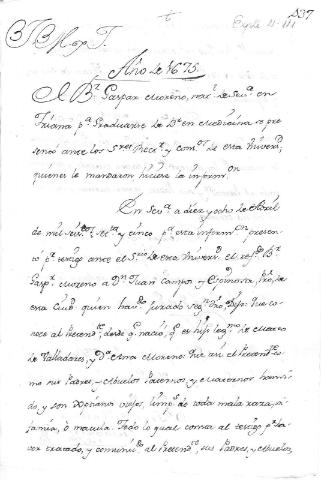 t 237
Año de 1675.
El B.r Gaspar Moreno, nat.l de Sev.a en
Triana p.a Graduarse de B.r en Medicina re pre
sentó ante los S.res Rect.r y Con.s de esta Univers.d
quienes le mandaron hiciese la inform.on
En Sev.a a diez y ocho de Abril
de mil seis.tos set.ta y cinco p.a esta inform.on presen
tó p.r testigo ante el S.rio de esta Univers.d el ref.do B.r
Gasp.r Moreno a D.n Juan Campos y Espinosa, Pbro, de
esta Ciud.d quien hav.do jurado seg.n dro, Dijo: Que co
noce al Pretend.te desde q.e nació, q.e es hijo leg.mo de Marcos
de Valladares, y D.a Ana Moreno: Que así el Pretend.te co
mo sus Padres, y Abuelos Paternos, y Maternos han si
do, y son Xptianos viejos, limp.s de toda mala raza, in
famia, ó macula. Todo lo qual consta al testigo p.r ha
ver tratado, y comunic.do al Pretend.te sus Padres, y Abuelos,